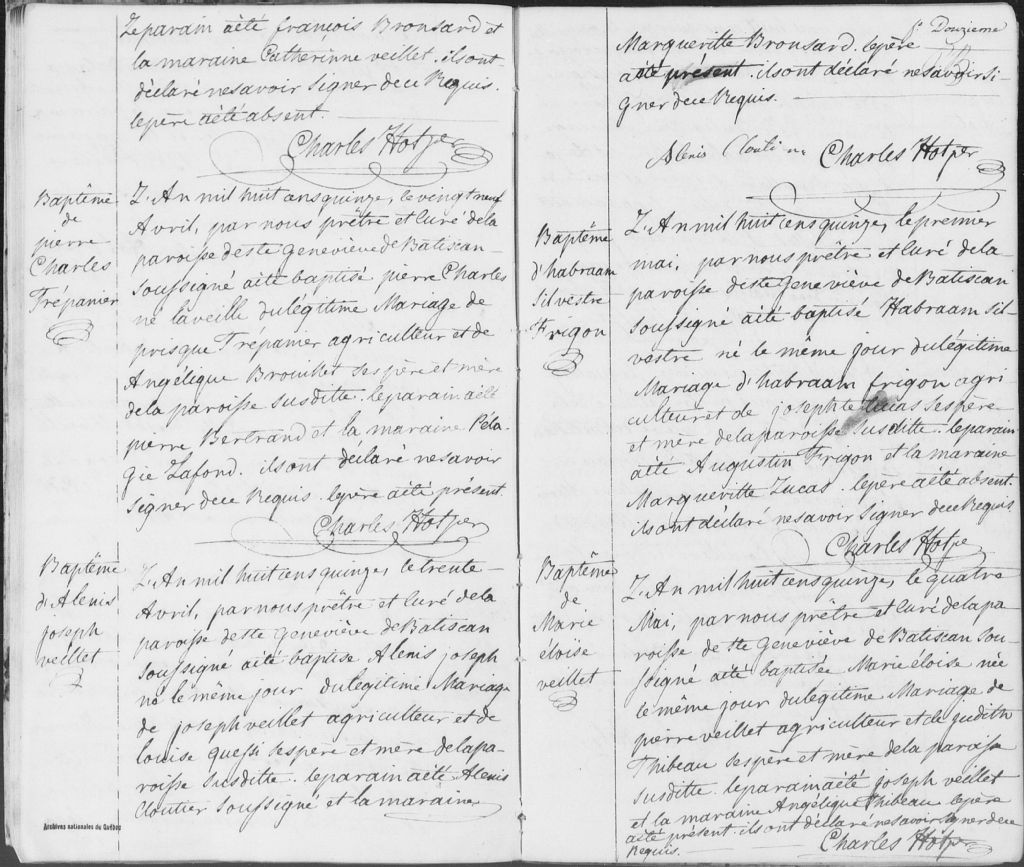 Le parain a été françois Bronsard et
la maraine Catherinne veillet. ils ont
déclaré ne savoir signer de ce Requis.
le père a été absent.
Charles Hotper
Baptême
de
pierre
Charles
Trépanier
L'An mil huit cens quinze, le vingt neuf
Avril, par nous prêtre et curé de la
paroisse de ste Geneviève de Batiscan
soussigné a été baptisé pierre Charles
né la veille du légitime Mariage de
prisque Trépanier agriculteur et de
Angélique Brouillet ses père et mère
de la paroisse susditte. le parain a été
pierre Bertrand et la maraine Péla-
gie Lafond. ils ont déclaré ne savoir
signer de ce Requis. le père a été présent.
Charles Hotper
Baptême
d'Alexis
joseph
veillet
L'An mil huit cens quinze, le trente
Avril, par nous prêtre et curé de la
paroisse de ste Geneviève de Batiscan
soussigné a été baptisé Alexis joseph
né le même jour du légitime Mariage
de joseph veillet agriculteur et de
louise ses père et mère de la pa-
roisse susditte. le parain a été Alexis
Cloutier soussigné et la maraine
Archives nationales du Québec
Douzieme
Margueritte Bronsard. le père
a été présent. ils ont déclaré ne savoir si-
gner de ce Requis.
Alexis Charles Hotper
Baptême
d'habraam
Silvestre
Frigon
L'An mil huit cens quinze, le premier
mai, par nous prêtre et curé de la
paroisse de ste Geneviève de Batiscan
soussigné a été baptisé Habraam Sil-
vestre né le même jour du légitime
Mariage d'habraam frigon agri-
culteur et de josephte Lucas ses père
et mère de la paroisse susditte. le parain
a été Augustin Frigon et la maraine
Margueritte Lucas. le père a été absent.
ils ont déclaré ne savoir signer de ce Requis.
Charles Hotper
Baptême
de
Marie
éloïse
veillet
L'An mil huit cens quinze, le quatre
Mai, par nous prêtre et curé de la pa-
roisse de ste Geneviève de Batiscan sous-
signé a été baptisée Marie éloise née
le même jour du légitime Mariage de
pierre veillet agriculteur et de judith
Thibeau ses père et mère de la paroisse
susditte. le parain a été joseph veillet
et la maraine Angélique Thibeau. le père
a été présent. ils ont déclaré ne savoir signer de ce
Requis.
Charles Hotper